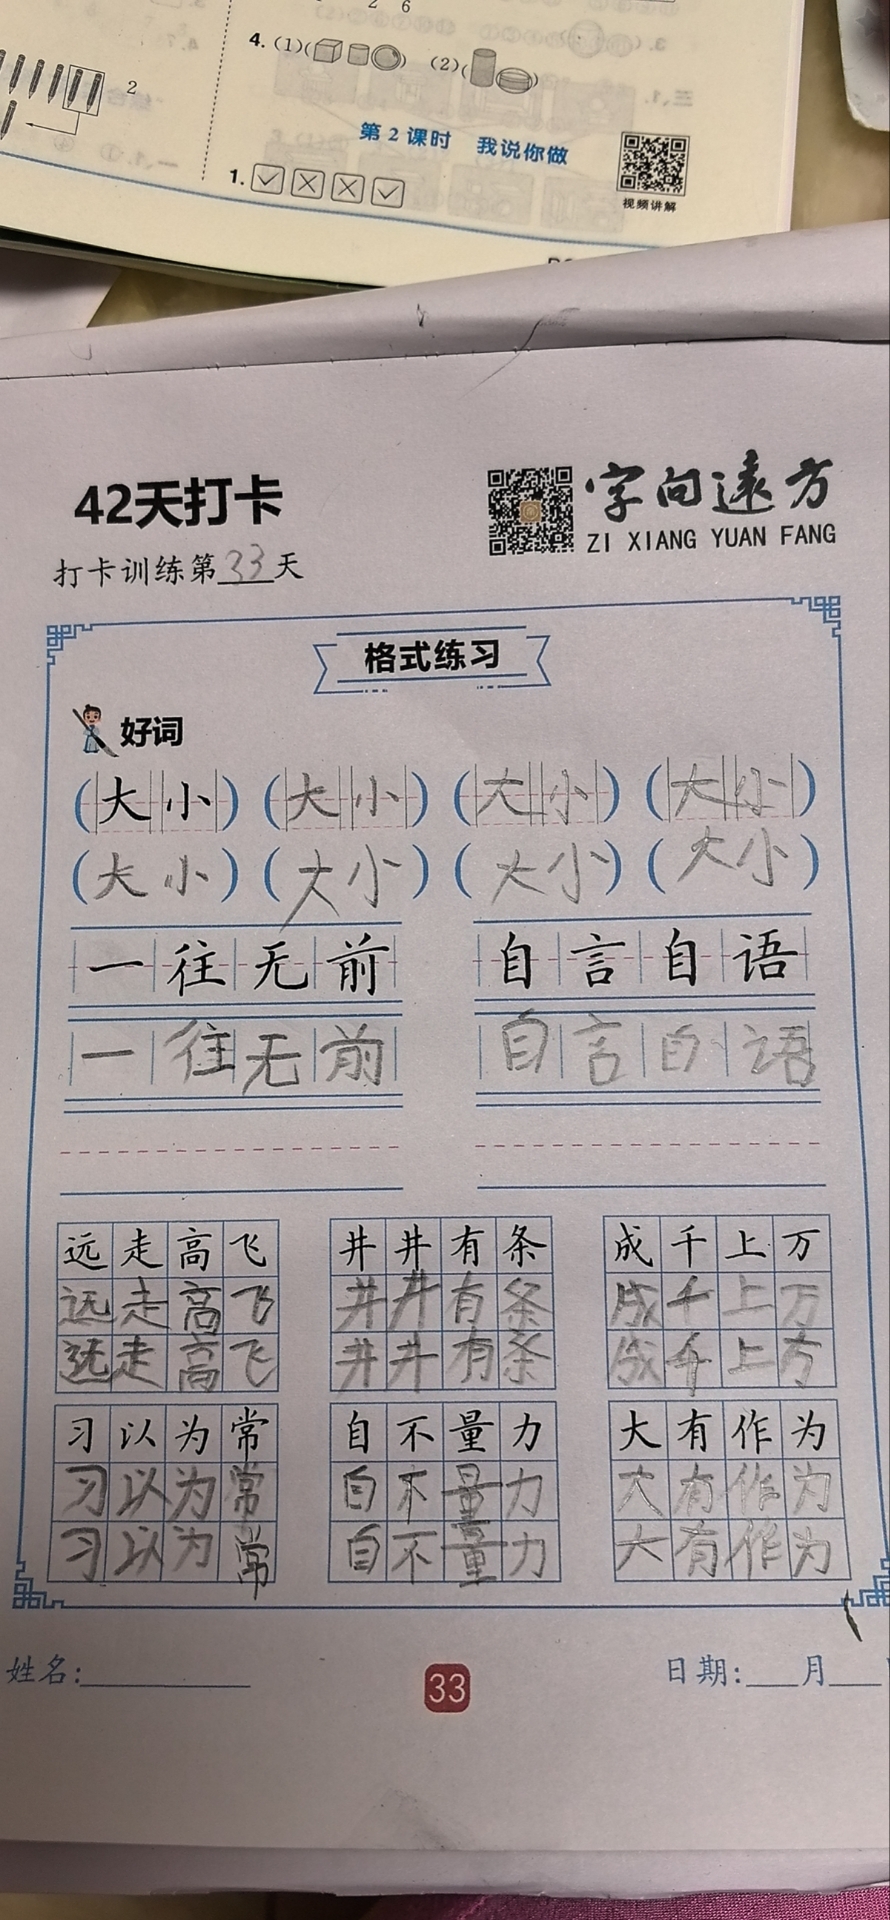 2 6
4. (1)( ) (2)( )
2
第2课时 我说你做
1.
视频讲解
42天打卡
字向远方
ZI XIANG YUAN FANG
打卡训练第33天
格式练习
好词
(大小) (大小) (大小) (大小)
(大小) (大小) (大小) (大小)
一往无前 自言自语
一往无前 自言自语
远走高飞 井井有条 成千上万
远走高飞 井井有条 成千上万
远走高飞 井井有条 成千上万
习以为常 自不量力 大有作为
习以为常 自不量力 大有作为
习以为常 自不量力 大有作为
姓名:
33
日期: 月